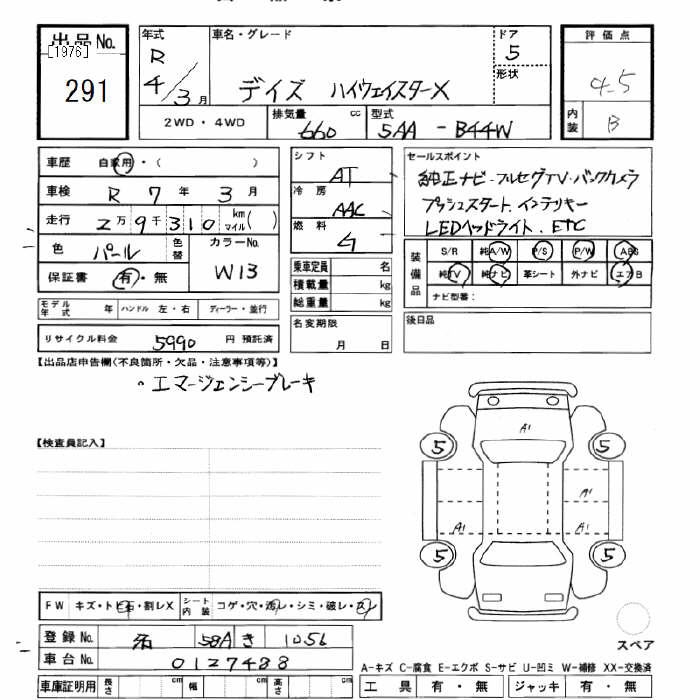 出品No. 年式 車名・グレード ドア 評価点
[1976] R 5
291 4/3月 デイズ ハイウェイスターX 形状 4.5
2WD・4WD 排気量 660 cc 型式 5AA-B44W 内装 B
車歴 自家用・( ) シフト AT セールスポイント
車検 R 7年 3月 冷房 AAC 純正ナビ・フルセグTV・バックカメラ
走行 2万9千310 km マイル( ) 燃料 G プッシュスタート、インテリキー
色 パール 色替 カラーNo. W13 LEDヘッドライト、ETC
保証書 有・無 乗車定員 名 装備品 S/R 純A/W P/S P/W ABS
積載量 kg 純TV 純ナビ 革シート 外ナビ エアB
モデル年式 年 ハンドル 左・右 ディーラー・並行 総重量 kg ナビ型番:
リサイクル料金 5990 円 預託済 名変期限 月 日 後日品
【出品店申告欄(不良箇所・欠品・注意事項等)】
。エマージェンシーブレーキ
A1
【検査員記入】 5 5
A1
A1 A1
5 5
FW キズ・トビ石・割レX シート内装 コゲ・穴・汚レ・シミ・破レ・スレ
登録No. 58A き 1056 スペア
車台No. 0127488
A-キズ C-腐食 E-エクボ S-サビ U-凹ミ W-補修 XX-交換済
車庫証明用 長さ cm 幅 cm 高さ cm 工具 有・無 ジャッキ 有・無